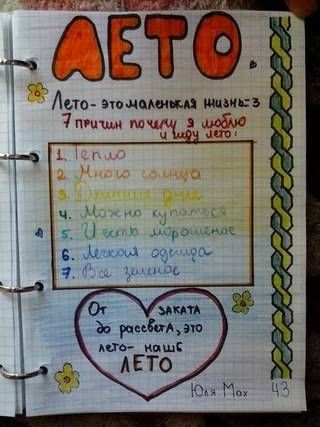 ЛЕТО.
Лето - это маленькая жизнь=3
7 причин почему я люблю
и жду лето:
1. Тепло
2. Много солнца
3. Длинные дни
4. Можно купаться
5. И есть мороженое
6. Легкая одежда
7. Все зеленое
От ЗАКАТА
до рассветА, это
лето- нашЕ
ЛЕТО
Юля Мох 43